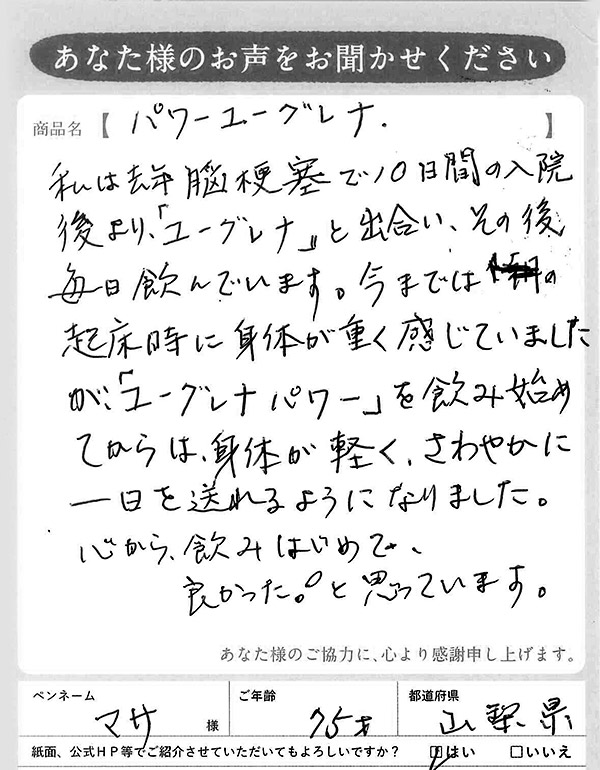 あなた様のお声をお聞かせください
商品名【 パワーユーグレナ. 】
私は去年脳梗塞で10日間の入院
後より、「ユーグレナ」と出合い、その後
毎日飲んでいます。今までは朝の
起床時に身体が重く感じていました
が、「ユーグレナパワー」を飲み始め
てからは、身体が軽く、さわやかに
一日を送れるようになりました。
心から、飲みはじめて、
良かった。と思っています。
あなた様のご協力に、心より感謝申し上げます。
ペンネーム ご年齢 都道府県
マサ 様 75才 山梨県
紙面、公式HP等でご紹介させていただいてもよろしいですか? ☑はい □いいえ